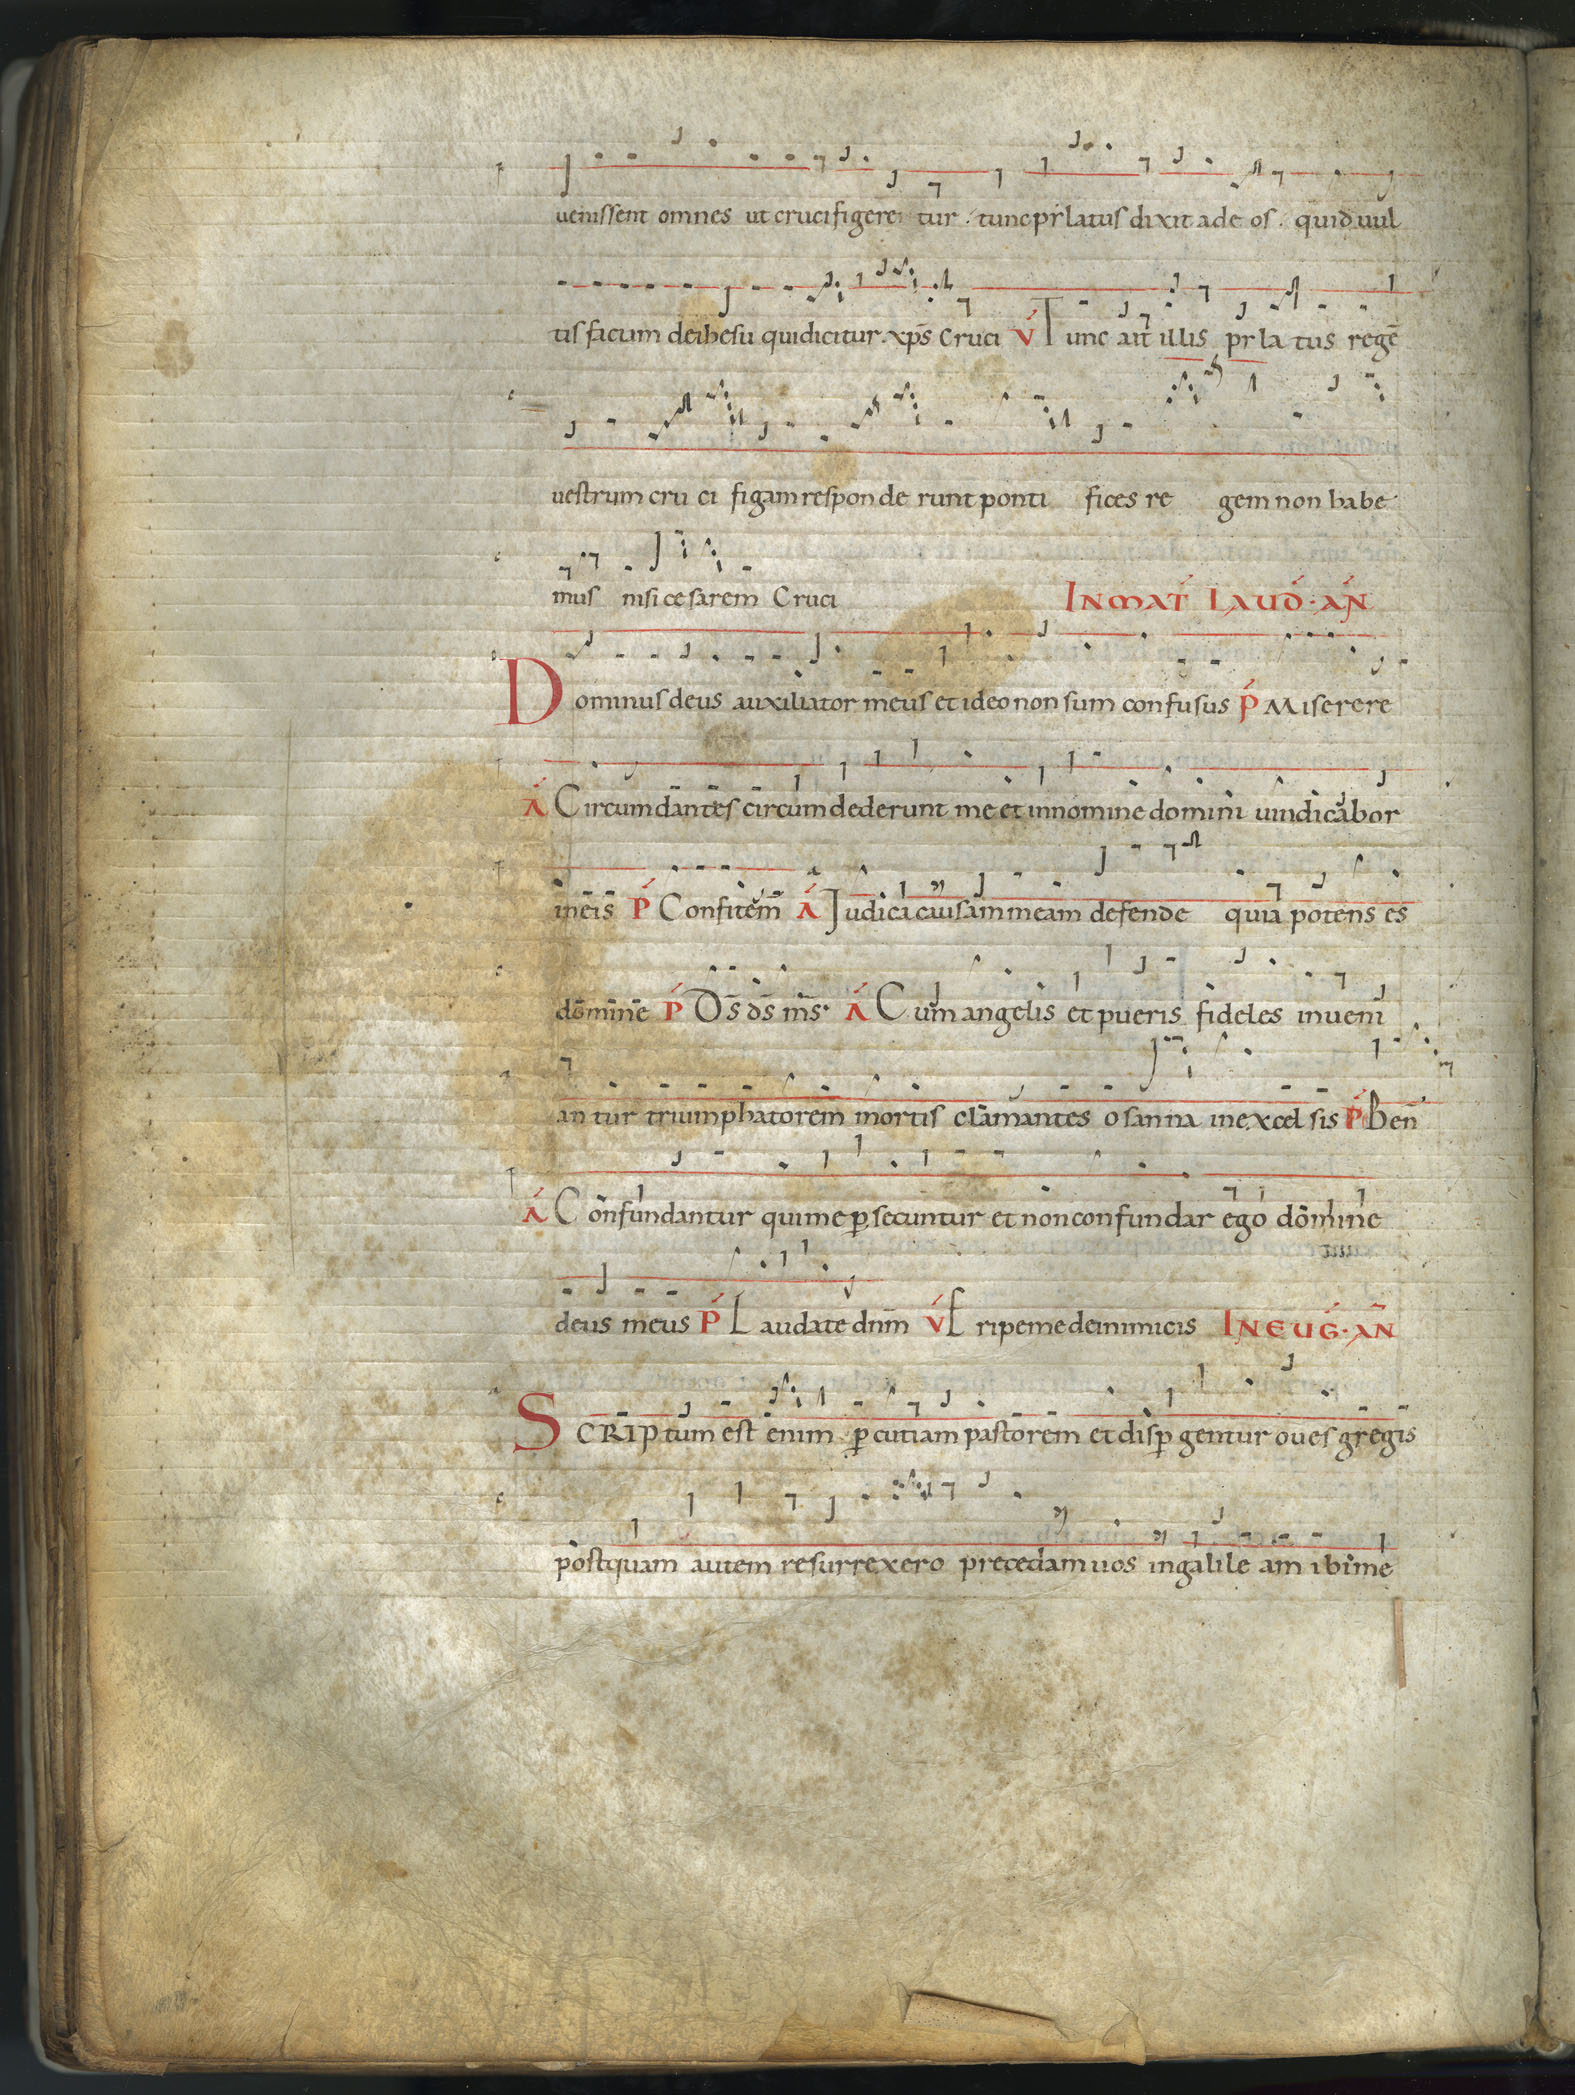 uenissent omnes ut crucifigere tur . tunc pylatus dixit ade os . quid uul
tis facum de ihesu qui dicitur . xp̄s Cruci V́ Tunc ait illis pyla tus regē
uestrum cru ci figam respon de runt ponti fices re gem non habe
mus nisi ce sarem Cruci IN MAT LAUD · AÑ
Dominus deus auxiliator meus et ideo non sum confusus P̄ Miserere
Á Circumdantes circumdederunt me et in nomine domini uindicabor
in eis P̄ Confitem̄ Á Judica causam meam defende quia potens es
domine P̄ D̄s d̄s m̄s · Á Cum angelis et pueris fideles inueni
an tur triumphatorem mortis clamantes osanna in excel sis P̄ Ben̄
Á Confundantur qui me ꝑsecuntur et non confundar ego domine
deus meus P̄ Laudate dnm̄ V́ Eripe me de inimicis IN EUG̃ · AÑ
SCRIPtum est enim ꝑcutiam pastorem et disꝑgentur oues gregis
postquam autem resurrexero precedam uos in galile am ibi me